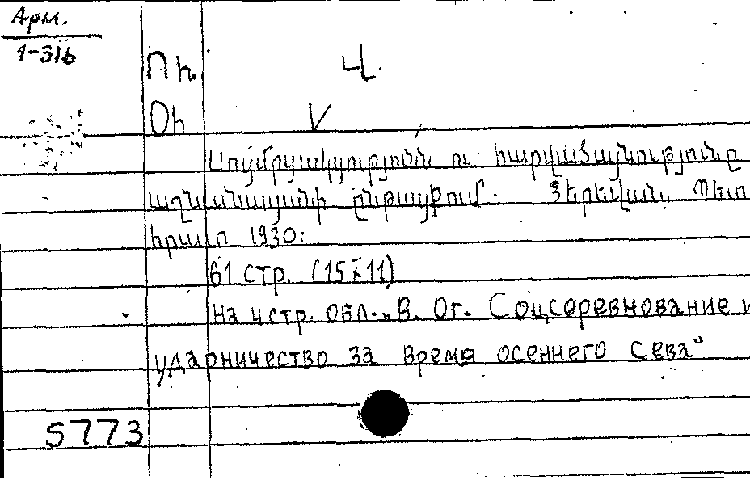 Арм.
1-316
Ու. Վ.
Օհ V
Սոցմրցակցություն ու հարվածայնությունը
աշնանացանի ընթացքում. Յերեվան, Պետ
հրատ 1930:
61 стр. (15×11)
На 4 стр. обл. "В. Ог. Соцсоревнование и
ударничество за время осеннего сева"
5773